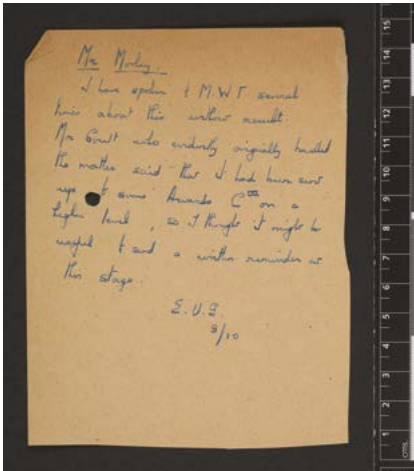 Mr Morley.
I have spoken to M.W.T. several
times about this without result.
Mr Grant who evidently originally handled
the matter said that it had been sent
up to some Awards Cttee on a
higher level, so I thought it might be
useful to send a written reminder at
this stage.
E.V.G.
8/10
15
14
13
12
11
10
9
8
7
6
5
4
3
2
1
cms